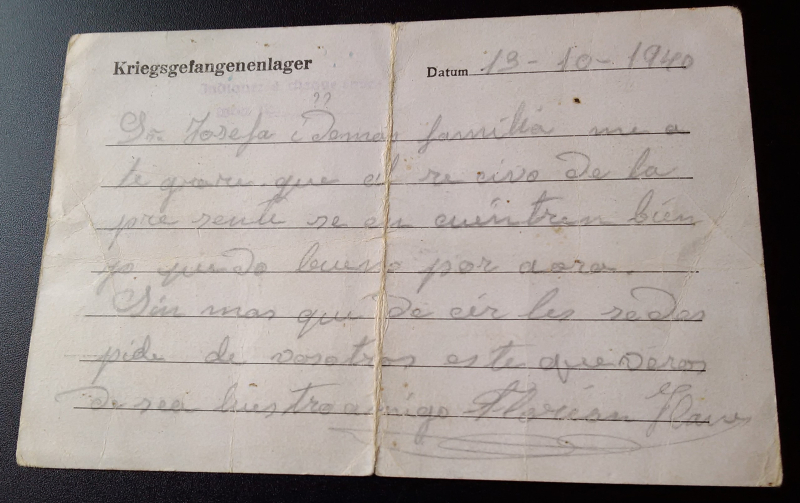 Kriegsgefangenenlager
Datum 13-10-1940
??
Sr. Josefa i demas familia me a
le grare que al re civo de la
pre sente se en cuentren bien
yo quedo bueno por aora.
Sin mas que de cir les se des
pide de vosotros este que veros
de sea buestro amigo Florian